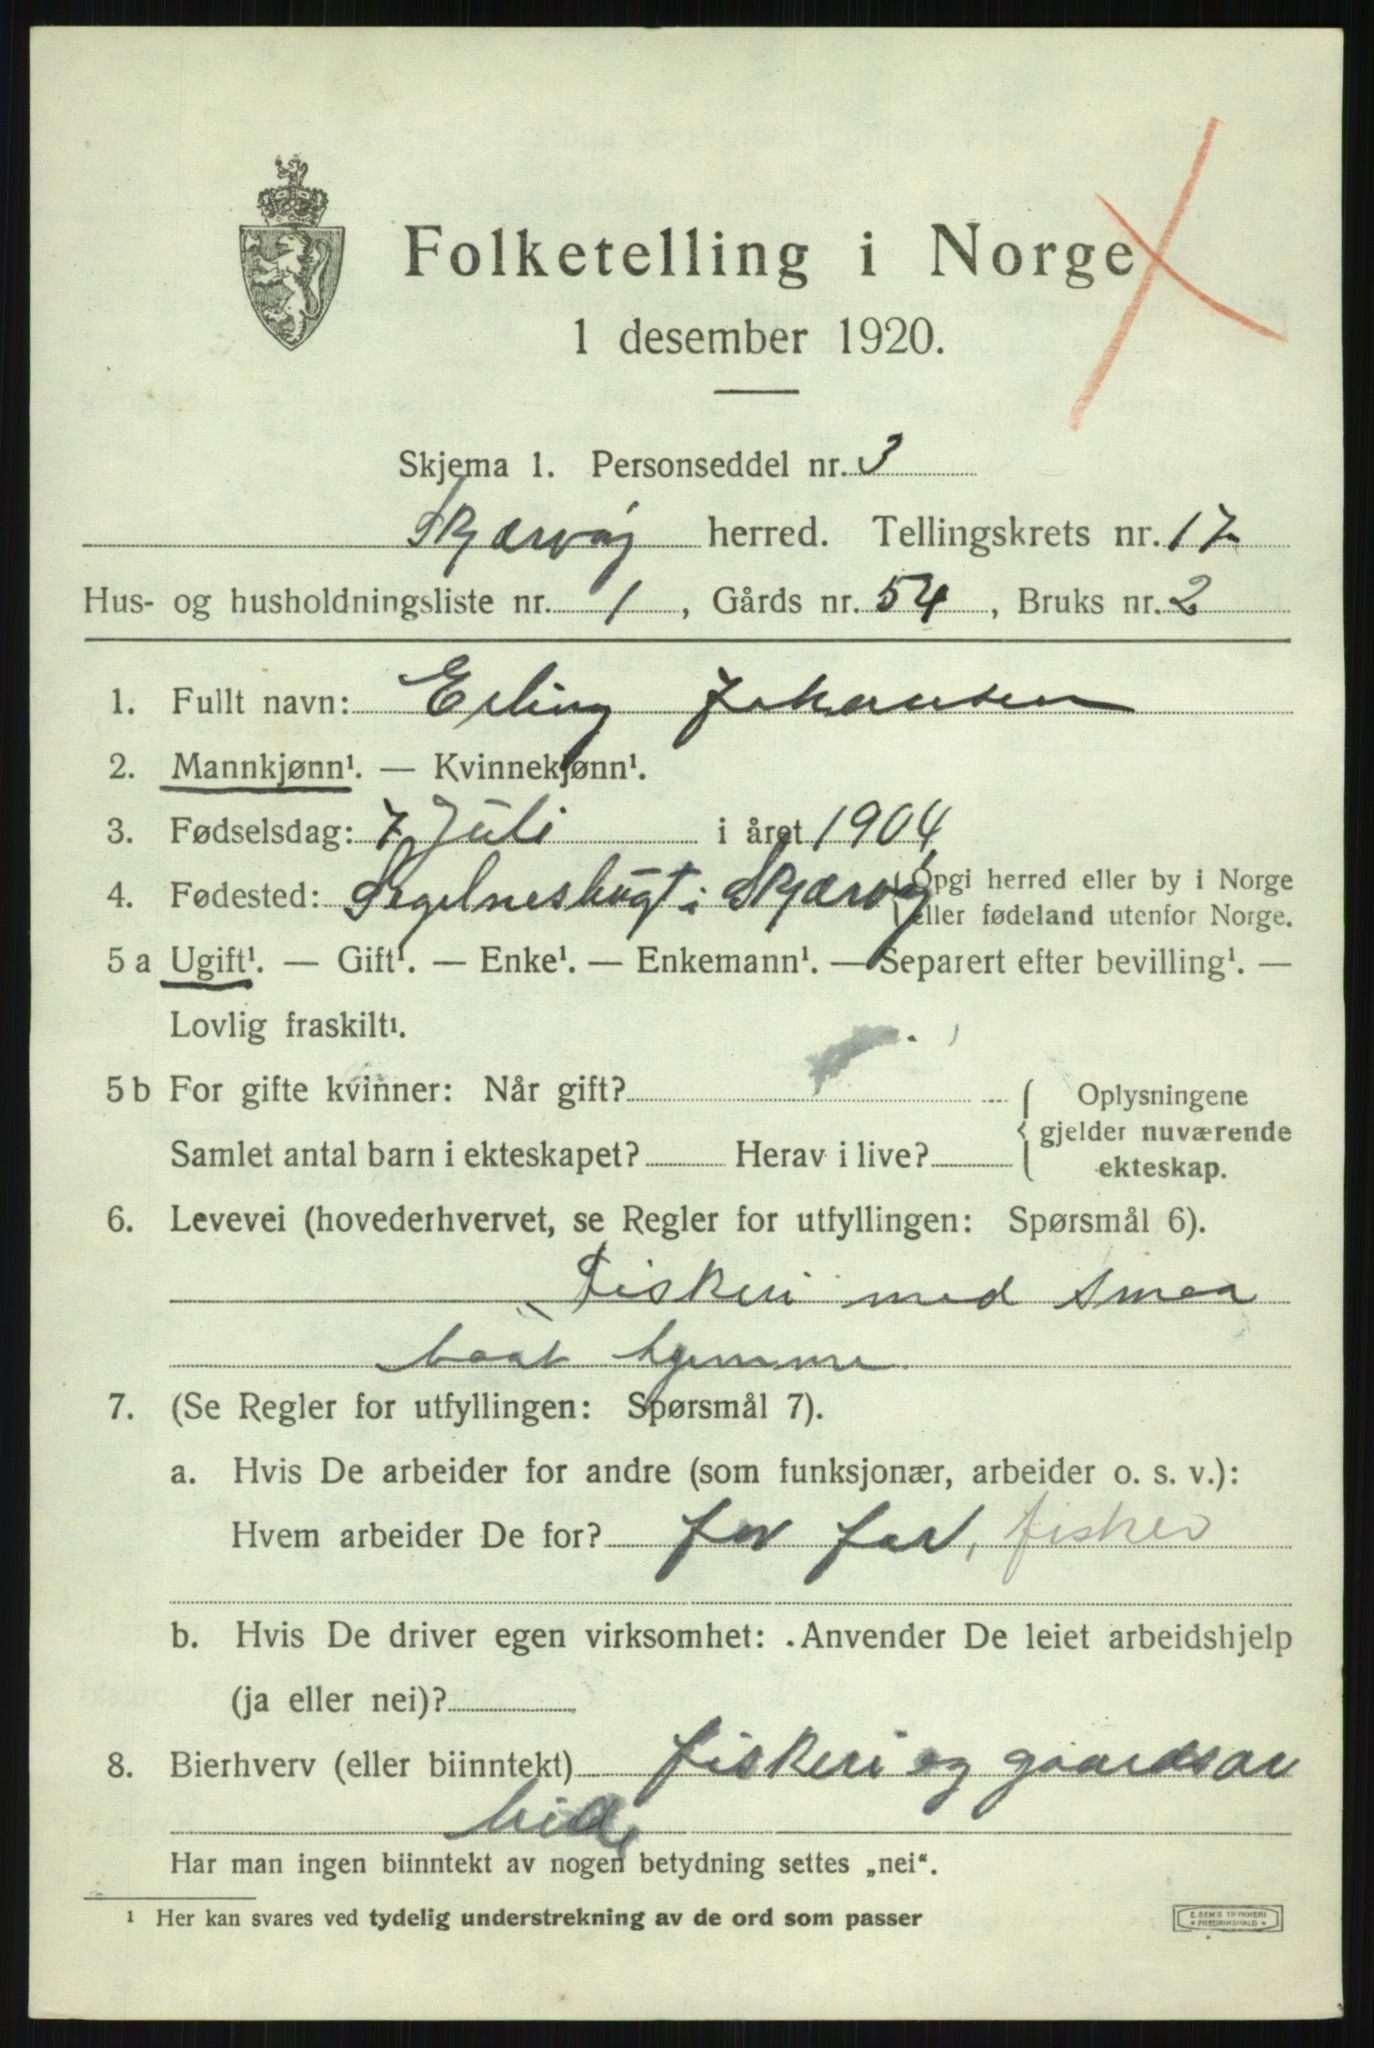 Folketelling i Norge
1 desember 1920.
Skjema 1. Personseddel nr. 3
Skjærvøy herred. Tellingskrets nr. 17
Hus- og husholdningsliste nr. 1, Gårds nr. 54, Bruks nr. 2
1. Fullt navn: Erling Johansen
2. Mannkjønn¹. — Kvinnekjønn¹.
3. Fødselsdag: 7 Juli i året 1904
4. Fødested: Segelnesbugt i Skjærvøy (Opgi herred eller by i Norge
eller fødeland utenfor Norge.
5 a Ugift¹. — Gift¹. — Enke¹. — Enkemann¹. — Separert efter bevilling¹. —
Lovlig fraskilt¹.
5 b For gifte kvinner: Når gift? Oplysningene
gjelder nuværende
Samlet antal barn i ekteskapet? Herav i live? ekteskap.
6. Levevei (hovederhvervet, se Regler for utfyllingen: Spørsmål 6).
Fiskeri med smaa
baat hjemme
7. (Se Regler for utfyllingen: Spørsmål 7).
a. Hvis De arbeider for andre (som funksjonær, arbeider o. s. v.):
Hvem arbeider De for? for far, fisker
b. Hvis De driver egen virksomhet: Anvender De leiet arbeidshjelp
(ja eller nei)?
8. Bierhverv (eller biinntekt) fiskeri og gaardsar
beide
Har man ingen biinntekt av nogen betydning settes „nei“.
¹ Her kan svares ved tydelig understrekning av de ord som passer
E. SEM'S TRYKKERI
FREDRIKSHALD